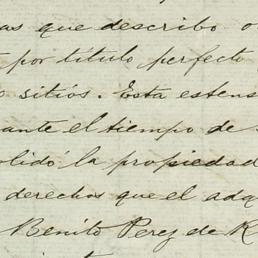 as que describo o
por título perfecto
sitiós. Esta estens
ante el tiempo de
olidó la propiedad
derechos que el adq
Benito Perez de R